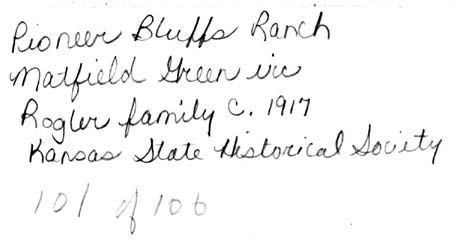 Pioneer Bluffs Ranch
Matfield Green vic
Rogler family c. 1917
Kansas State Historical Society
101 of 106